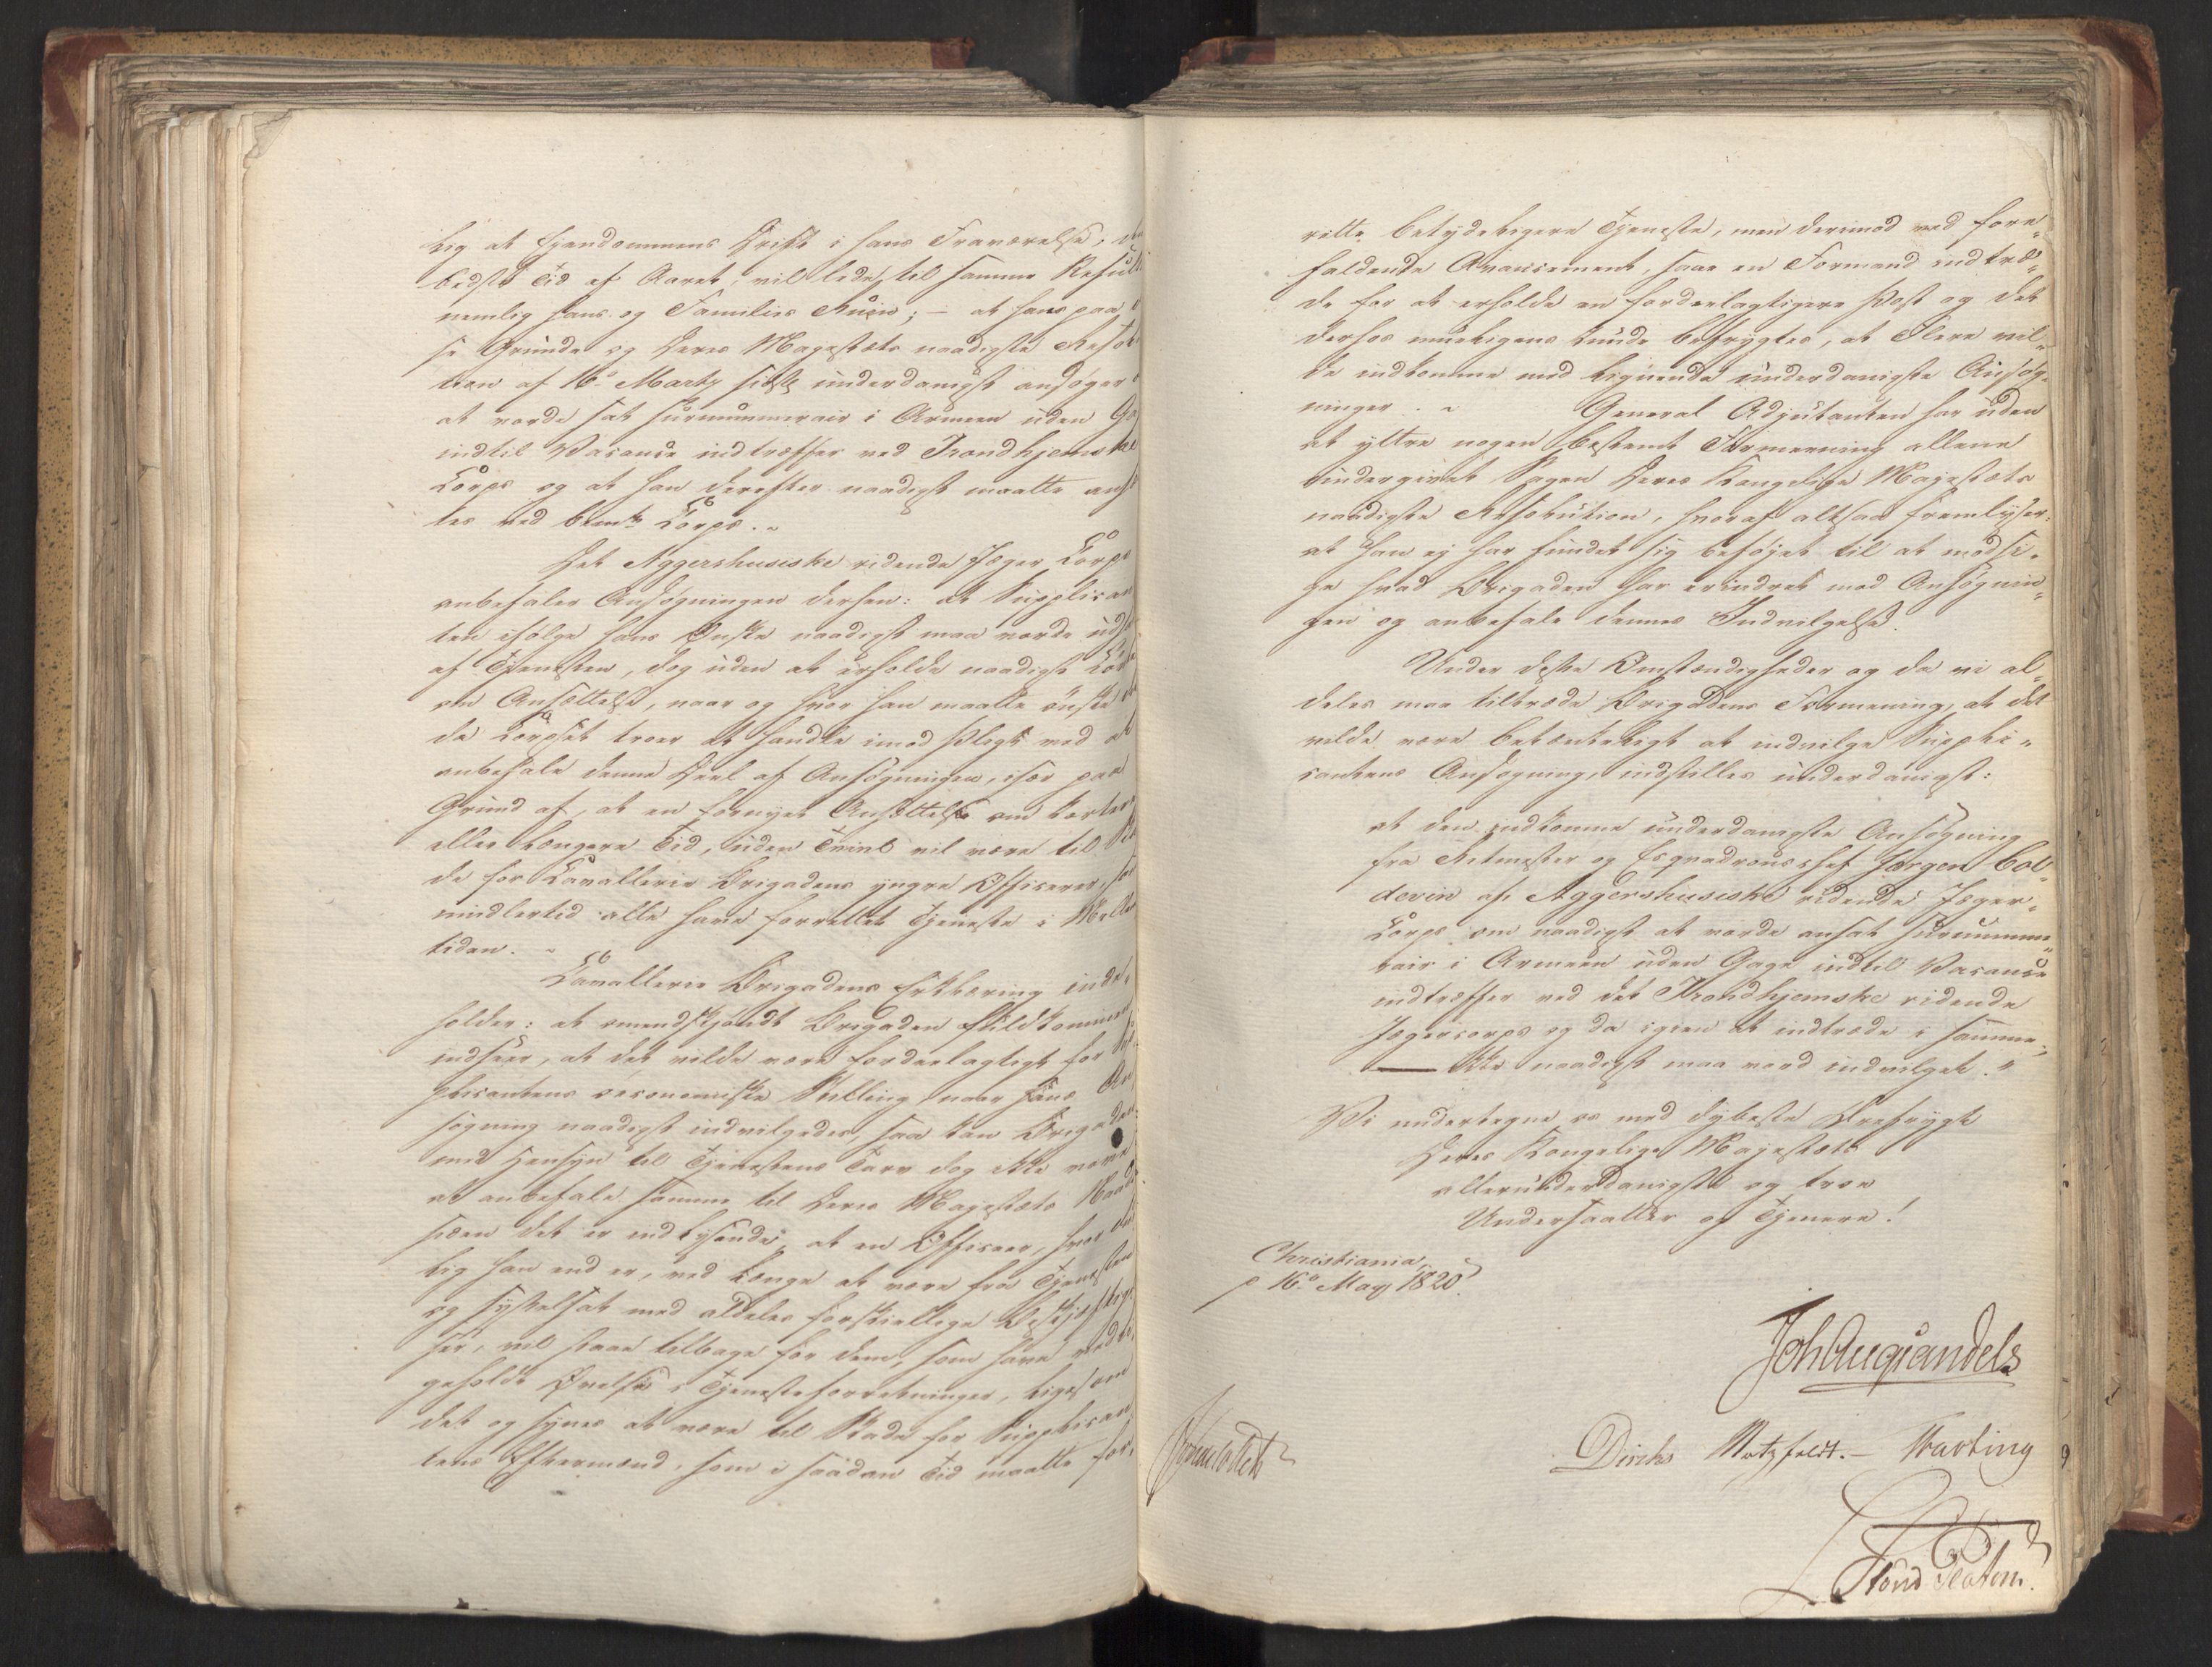 lig at Ejendommens Drift i hans Fraværelse, den
bedste Tid af Aaret, vil lede til samme Result
nemlig hans og Families Ruin; – at han paa
se Grunde og Deres Majestæts naadigste Resolu
tion af 16de Martz sidste underdanigst ansøger
at vorde sat surnummerair i Armeen uden Ga
indtil Vacance indtræffer ved Trondhjemske
Corps og at han derefter naadigst maatte anst
tes ved bemte Corps. –
Det Aggershusiske ridende Jæger Corps
anbefaler Ansøgningen derhen: at Supplican
ten ifølge hans Ønske naadigst maa vorde uds
af Tjenesten, dog uden at erholde naadigst Løf
om Ansættelse, naar og hvor han maatte ønske det
da Corpset troer at handle imod Pligt ved at
anbefale denne Deel af Ansøgningen, især paa
Grund af, at en fornyet Ansættelse om kortere
eller længere Tid, uden Tvivl vil være til Ska
de for Cavallerie Brigadens yngre Officerer, som
imidlertid alle have forrettet Tjeneste i Mellem
tiden. –
Cavallerie Brigadens Erklæring inde-
holder: at omendskjøndt Brigaden fuldkommen
indseer, at det vilde være fordeelagtigt for Sup
plicantens oeconomiske Stilling naar hans An
søgning naadigst indvilgedes, saa kan Brigaden
med Hensyn til Tjenestens Tarv dog ikke vove
at anbefale samme til Deres Majestæts Naade
siden det er indlysende, at en Officeer, hvor due
lig han end er, ved længe at være fra Tjenesten
og sysselsat med aldeles forskiellige Beskjæftigel
ser, vil staae tilbage for dem, som have vedli
geholdt Øvelse i Tjenesteforretninger, ligesom
det og synes at være til Skade for Supplican
tens Eftermænd, som i saadan Tid maatte for-
rette betydeligere Tjeneste, men derimod ved fore-
faldende Avancement, saae en Formand indtræ-
de for at erholde en fordeelagtigere Post og det
derhos mueligens kunde befrygtes, at Flere vil-
de indkomme med lignende underdanigste Ansøg-
ninger. – General Adjutanten har uden
at yttre nogen bestemt Formeening allene
undergivet Sagen Deres Kongelige Majestæts
naadigste Resolution, hvoraf altsaa fremlyser,
at Han ej har fundet sig beføjet til at modsi-
ge hvad Brigaden har erindret mod Ansøgnin-
gen og anbefale dennes Indvilgelse.
Under disse Omstændigheder og da vi al-
deles maa tiltræde Brigadens Formening, at det
vilde være betænkeligt at indvilge Suppli-
cantens Ansøgning, indstilles underdanigst:
at den indkomne underdanigste Ansøgning
fra Ritmester og Esquadronschef Jørgen Col-
devin af Aggershusiske ridende Jæger-
Corps om naadigst at vorde ansat surnumme-
rair i Armeen uden Gage indtil Vacance
indtræffer ved det Trondhjemske ridende
Jægercorps og da igien at indtræde i samme,
— ikke naadigst maa vord indvilget."
Vi undertegne os med dybeste Ærefrygt
Deres Kongelige Majestæts
allerunderdanigste og troe
Undersaatter og Tjenere!
Christiania,
d 16de May 1820.
Joh Aug Sandels
Diriks Motzfeldt. – Krebting
Stoud Platou.